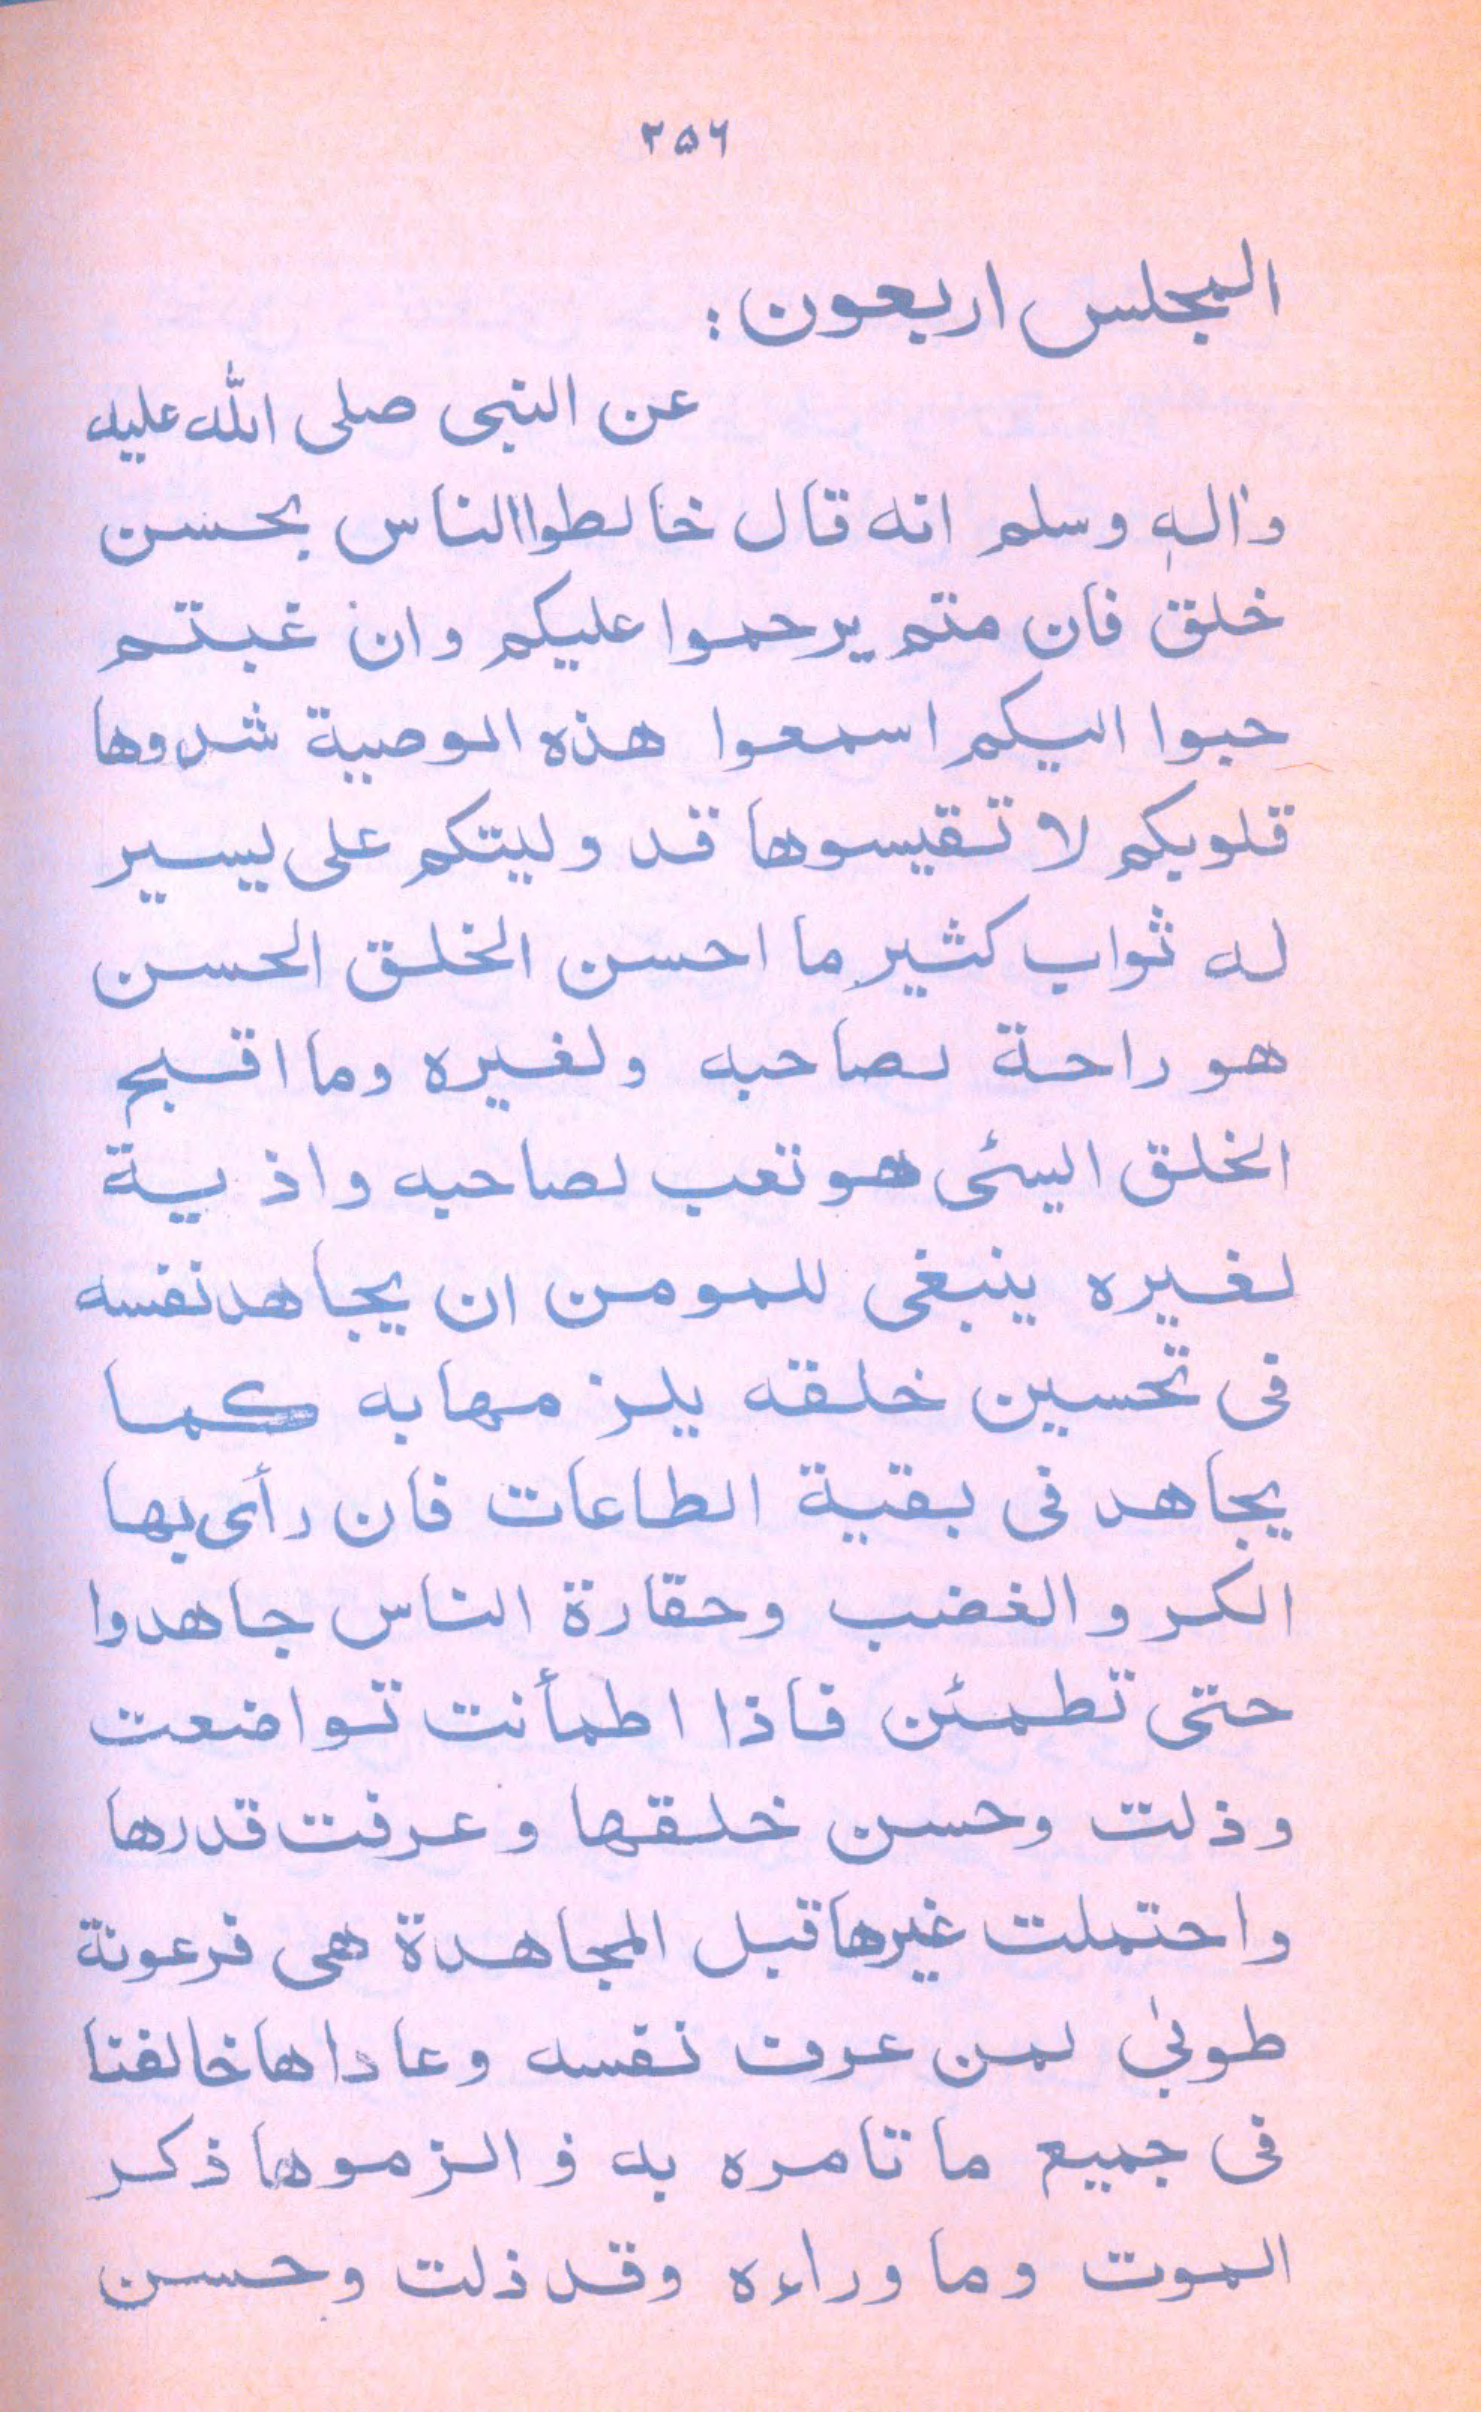 ۲۵۶
المجلس اربعون:
عن النبی صلی اللہ علیہ
واٰلہٖ وسلم انه قال خالطوا الناس بحسن
خلق فان متم یرحموا علیکم وان غبتم
حبوا الیکم اسمعوا هذه الوصیة شدوها
قلوبکم لا تقیسوها قد ولیتکم علی یسیر
له ثواب کثیر ما احسن الخلق الحسن
هو راحة لصاحبه ولغیره وما اقبح
الخلق السئی هو تعب لصاحبه واذ یة
لغیره ینبغی للمومن ان یجاهد نفسه
فی تحسین خلقه یلز مها به کما
یجاهد فی بقیة الطاعات فان رأی بها
الکر و الغضب وحقارة الناس جاهدوا
حتی تطمئن فاذا اطمأنت تواضعت
وذلت وحسن خلقها وعرفت قدرها
واحتملت غیرها قبل المجاهدة هی فرعونة
طوبیٰ لمن عرف نفسه وعاداها خالفنا
فی جمیع ما تامره به ف الزموها ذکر
الموت وما وراءه وقد ذلت وحسن